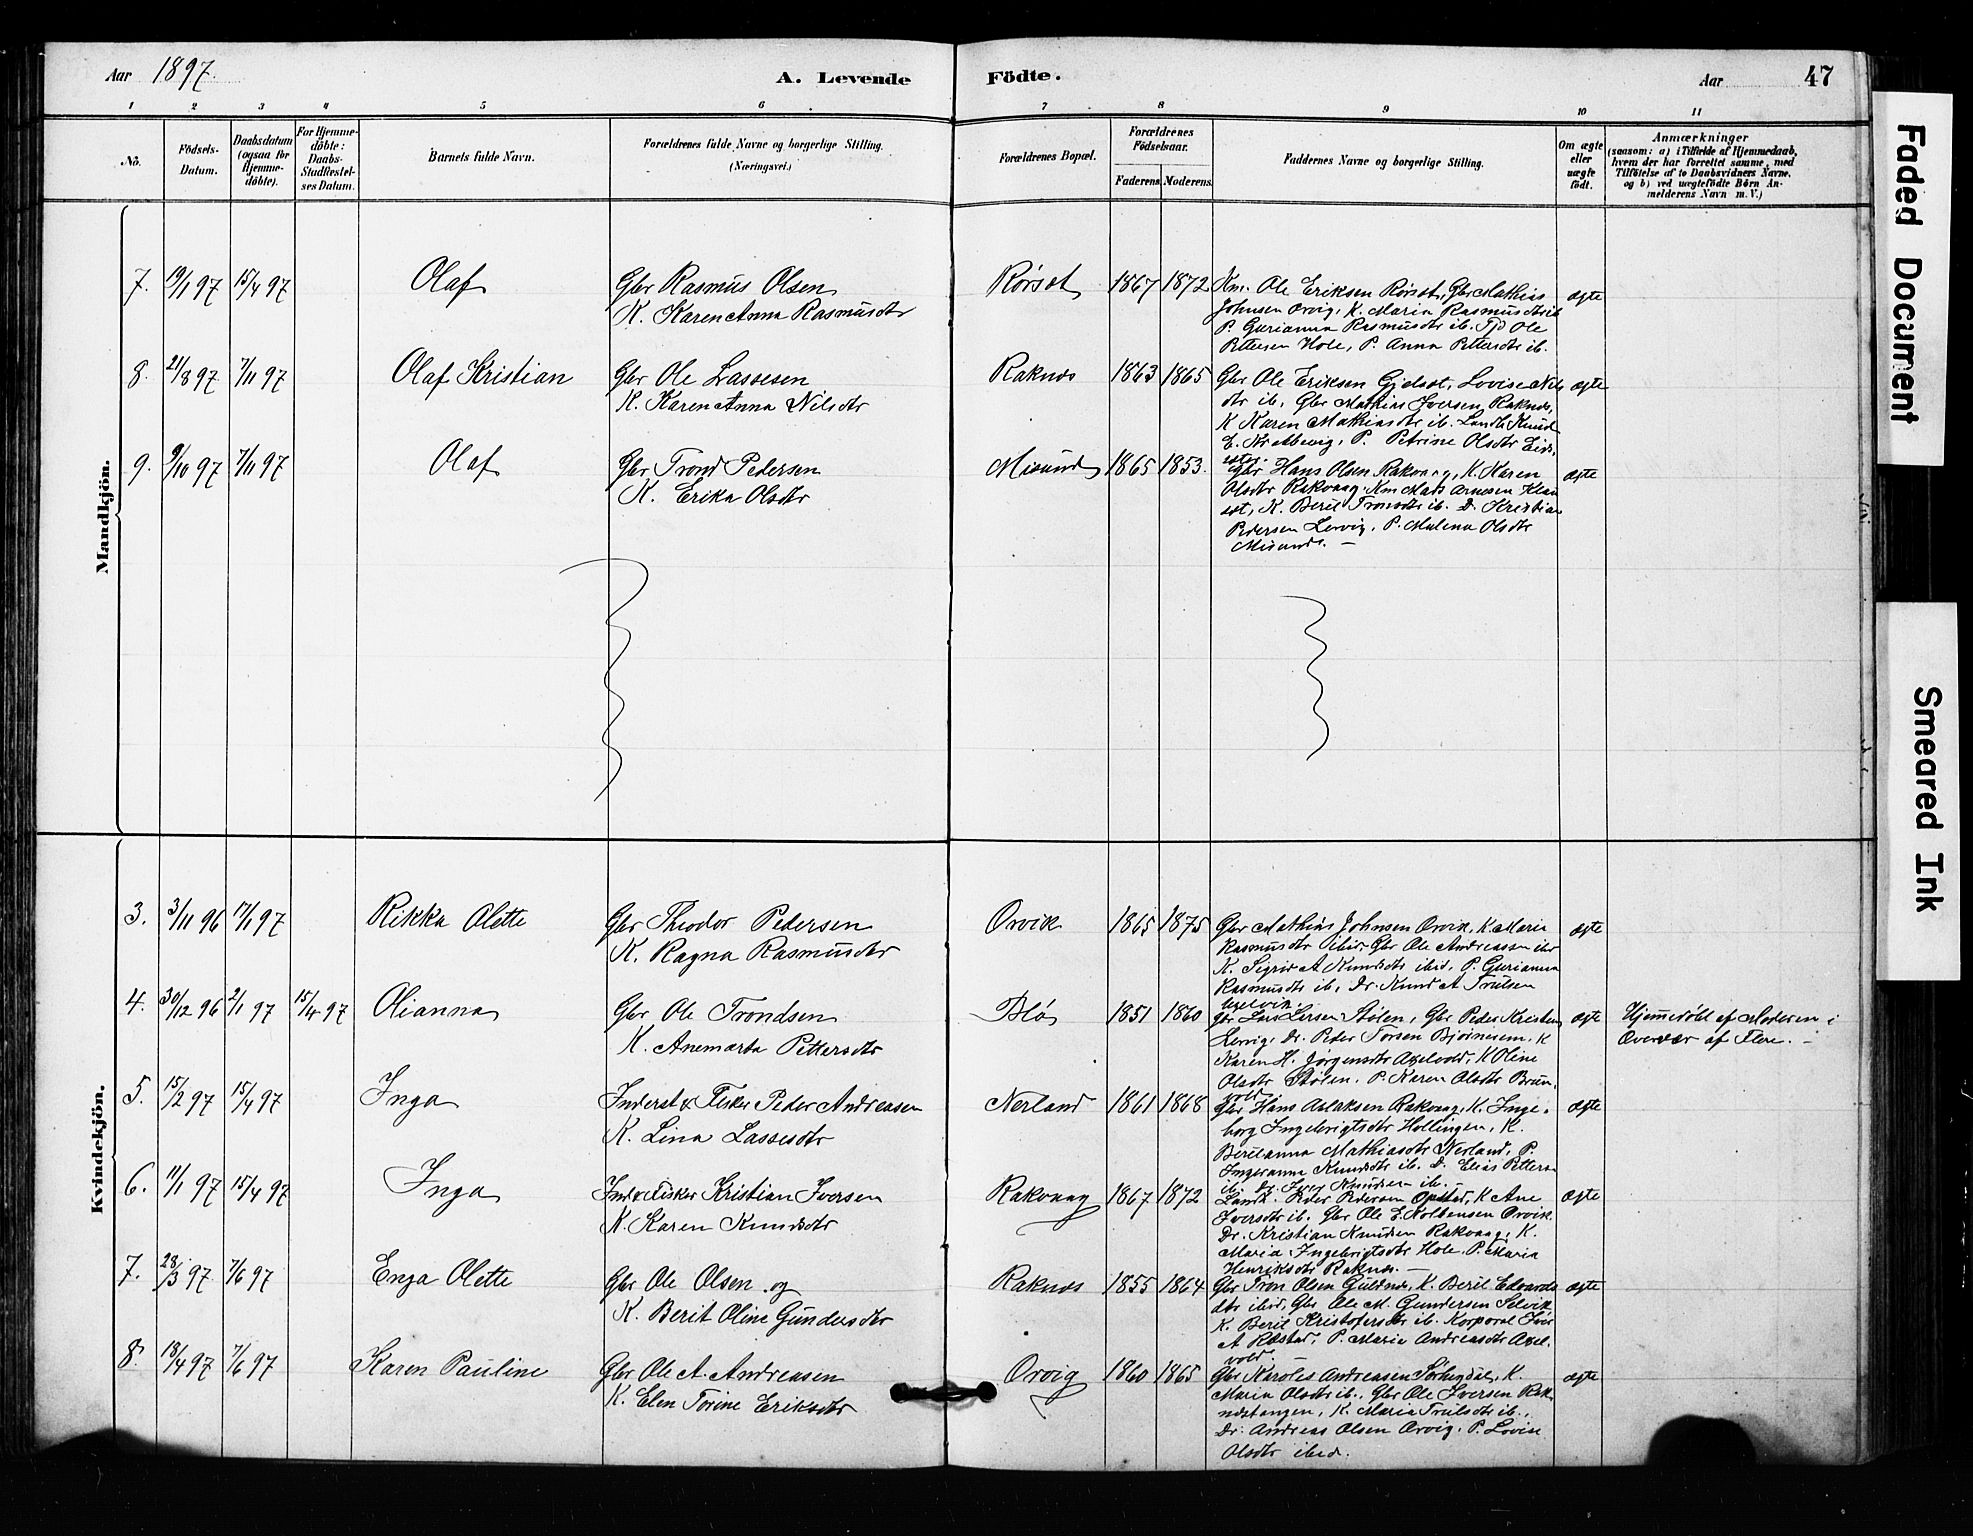 Aar 1897.
A. Levende
Födte.
Aar
47
1 2 3 4 5 6 7 8 9 10 11
No.
Födsels-Datum.
Daabsdatum (ogsaa for Hjemme-döbte).
For Hjemme-döbte: Daabs-Stadfæstel-ses Datum.
Barnets fulde Navn.
Forældrenes fulde Navne og borgerlige Stilling.
(Næringsvei.)
Forældrenes Bopæl.
Forældrenes Födselsaar.
Faderens Moderens.
Faddernes Navne og borgerlige Stilling.
Om ægte eller uægte födt.
Anmærkninger
(saasom: a) i Tilfælde af Hjemmedaab,
hvem der har forrettet samme, med
Tilföielse af to Daabsvidners Navne,
og b) ved uægtefödte Börn An-
melderens Navn m. V.)
Mandkjön.
7. 19/1 97 15/4 97 Olaf
Gbr Rasmus Olsen
K. Karen Anna Rasmusdtr
Rørset 1867 1872
Km. Ole Eriksen Rørset, Gbr Mathias
Johnsen Orvig, K. Maria Rasmusdtr ib
P. Gurianna Rasmusdtr ib. Tjd Ole
Pettersen Hole, P. Anna Pettersdtr ib.
ægte
8. 21/8 97 7/11 97 Olaf Kristian
Gbr Ole Lassesen
K. Karen Anna Nilsdtr
Raknes 1863 1865
Gbr Ole Eriksen Gjelset, Lovise Nils
dtr ib, Gbr Mathias Iversen Raknes,
K Karen Mathiasdtr ib. Landh. Knud
E. P. Petrine Olsdtr
ægte
9. 9/10 97 7/11 97 Olaf
Gbr Trond Pedersen
K. Erika Olsdtr
Misund 1865 1853.
Gbr Hans Olsen Rakvaag, K. Karen
Olsdtr Rakvaag, Km Mads Arnesen Klau
set, K. Beril Tronsdtr ib. D. Kristian
Pedersen Lervig, P. Malena Olsdtr
Misund. —
ægte
Kvindekjön.
3. 3/11 96 17/1 97 Rikka Olette
Gbr Theodor Pedersen
K. Ragna Rasmusdtr
Orvik 1865 1875
Gbr Mathias Johnsen Orvik, K Maria
Rasmusdtr ibid, Gbr Ole Andreassen ibd
K. Sigrid A Knudsdtr ibid, P. Gurianna
Rasmusdtr ib, Dr. Knud A Trulsen
ægte
4. 30/12 96 2/1 97 15/4 97 Olianna
Gbr Ole Trondsen
K. Anemarta Pettersdtr
Blø 1851 1860
Gbr Lars Larsen Stølen, Gbr Peder Kristens
Lervig, Dr. Peder Torsen Bjørnerem, K
Karen H. Jørgensdtr Axelvold, K Oline
Olsdtr Stølen, P. Karen Olsdtr Brun
vold
ægte
Hjemmedøbt af Moderen i
Overvær af Flere. —
5. 15/2 97 15/4 97 Inga
Inderst & Fisker Peder Andreasen
K. Lina Lassesdtr
Nerland 1861 1868
Gbr Hans Aslaksen Rakvaag, K. Inge-
borg Ingebrigtsdtr Hollingen, K.
Berilanna Mathiasdtr Nerland, P.
Ingeranna Knudsdtr ib. D. Elias Petters
ib. Dr. Iver Knudsen ib. —
ægte
6. 11/1 97 15/4 97 Inga
Ind & Fisker Kristian Iversen
K. Karen Knudsdtr
Rakvaag 1867 1872
Landh. Peder Pedersen Opstad, K Ane
Iversdtr ib. Gbr Ole E. Kolbensen Orvik
Dr. Kristian Knudsen Rakvaag, K.
Maria Ingebrigtsdtr Hole, P. Maria
Henriksdtr Raknes. —
ægte
7. 28/3 97 7/6 97 Enga Olette
Gbr Ole Olsen og
K. Berit Oline Gundersdtr
Raknes 1855 1864
Gbr Tron Olsen Guldnes, K. Beril Edvards
dtr ibid, Gbr Ole M. Gundersen Selvik
K. Beril Kristofersdtr ib. Korporal Iver
A Ræstad, P. Maria Andreasdtr Axel-
vold. —
ægte
8. 18/4 97 7/6 97 Karen Pauline
Gbr Ole A. Andreasen
K. Elen Torine Eriksdtr
Orvig 1860 1865
Gbr Karoles Andreasen K.
Maria Olsdtr ib., Gbr Ole Iversen Rak
nestangen, K. Maria Trulsdtr ib.,
Dr. Andreas Olsen Orvig, P. Lovise
Olsdtr ibid.
ægte
Faded Document
Smeared Ink